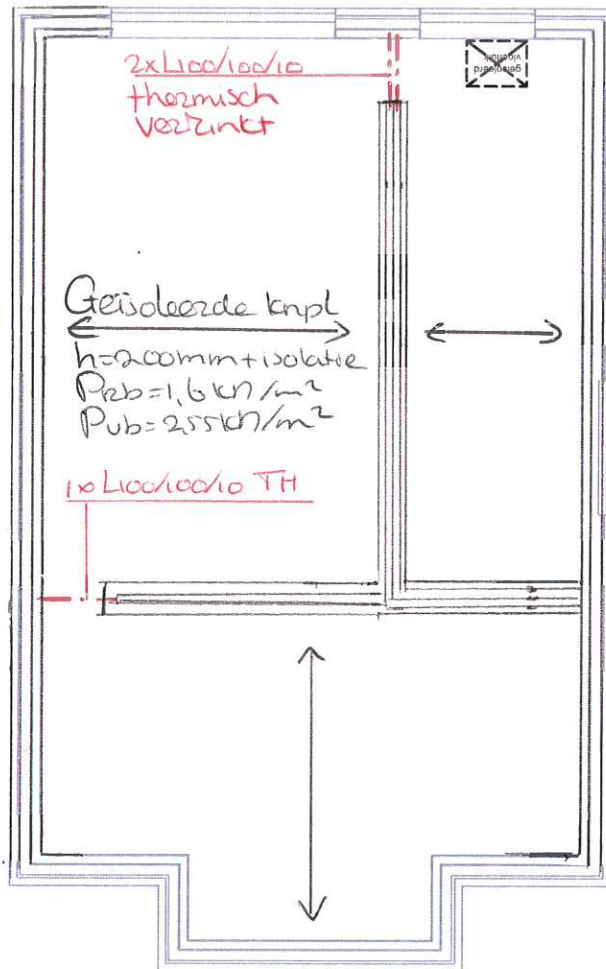 2xL100/100/10
thermisch
verzinkt
geïsoleerd
vloerluik
Geïsoleerde knpl
h=200mm+isolatie
Prb=1,6kN/m²
Pvb=2,55kN/m²
1xL100/100/10 TH